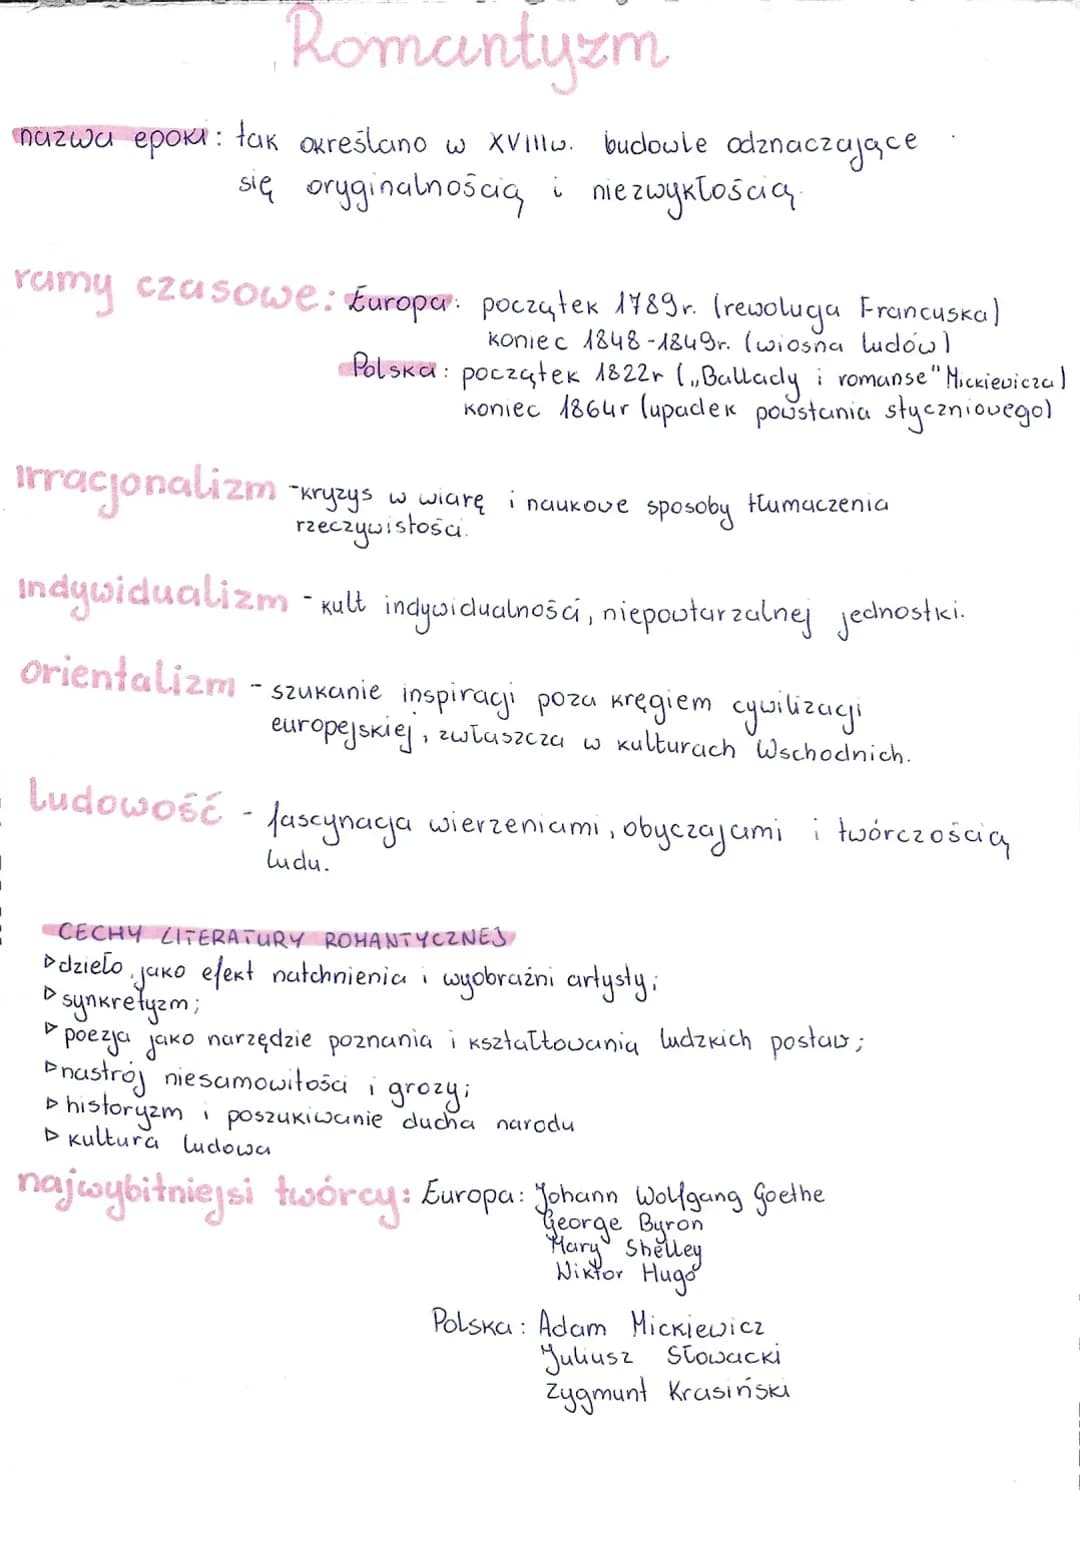 Romantyzm
nazwa epoki: tak określano w XVIIIw. budowle odznaczające
się oryginalnością i niezwykłością.
ramy czasowe: Europa: początek 1789r. (rewolucja Francuska)
koniec 1848-1849r. (wiosna ludów)
Polska: początek 1822r („Ballady i romanse" Mickiewicza)
koniec 1864r (upadek powstania styczniowego)
irracjonalizm - kryzys w wiarę i naukowe sposoby tłumaczenia
rzeczywistości.
indywidualizm - kult indywidualności, niepowtarzalnej jednostki.
orientalizm - szukanie inspiracji poza kręgiem cywilizacji
europejskiej, zwłaszcza w kulturach Wschodnich.
ludowość - fascynacja wierzeniami, obyczajami i twórczością
ludu.
CECHY LITERATURY ROMANTYCZNEJ
▷ dzieło jako efekt natchnienia i wyobraźni artysty;
▷ synkretyzm;
▷ poezja jako narzędzie poznania i kształtowania ludzkich postaw;
▷ nastrój niesamowitości i grozy;
▷ historyzm i poszukiwanie ducha narodu
▷ kultura ludowa
najwybitniejsi twórcy: Europa: Johann Wolfgang Goethe
George Byron
Mary Shelley
Wiktor Hugo
Polska: Adam Mickiewicz
Juliusz Słowacki
Zygmunt Krasiński